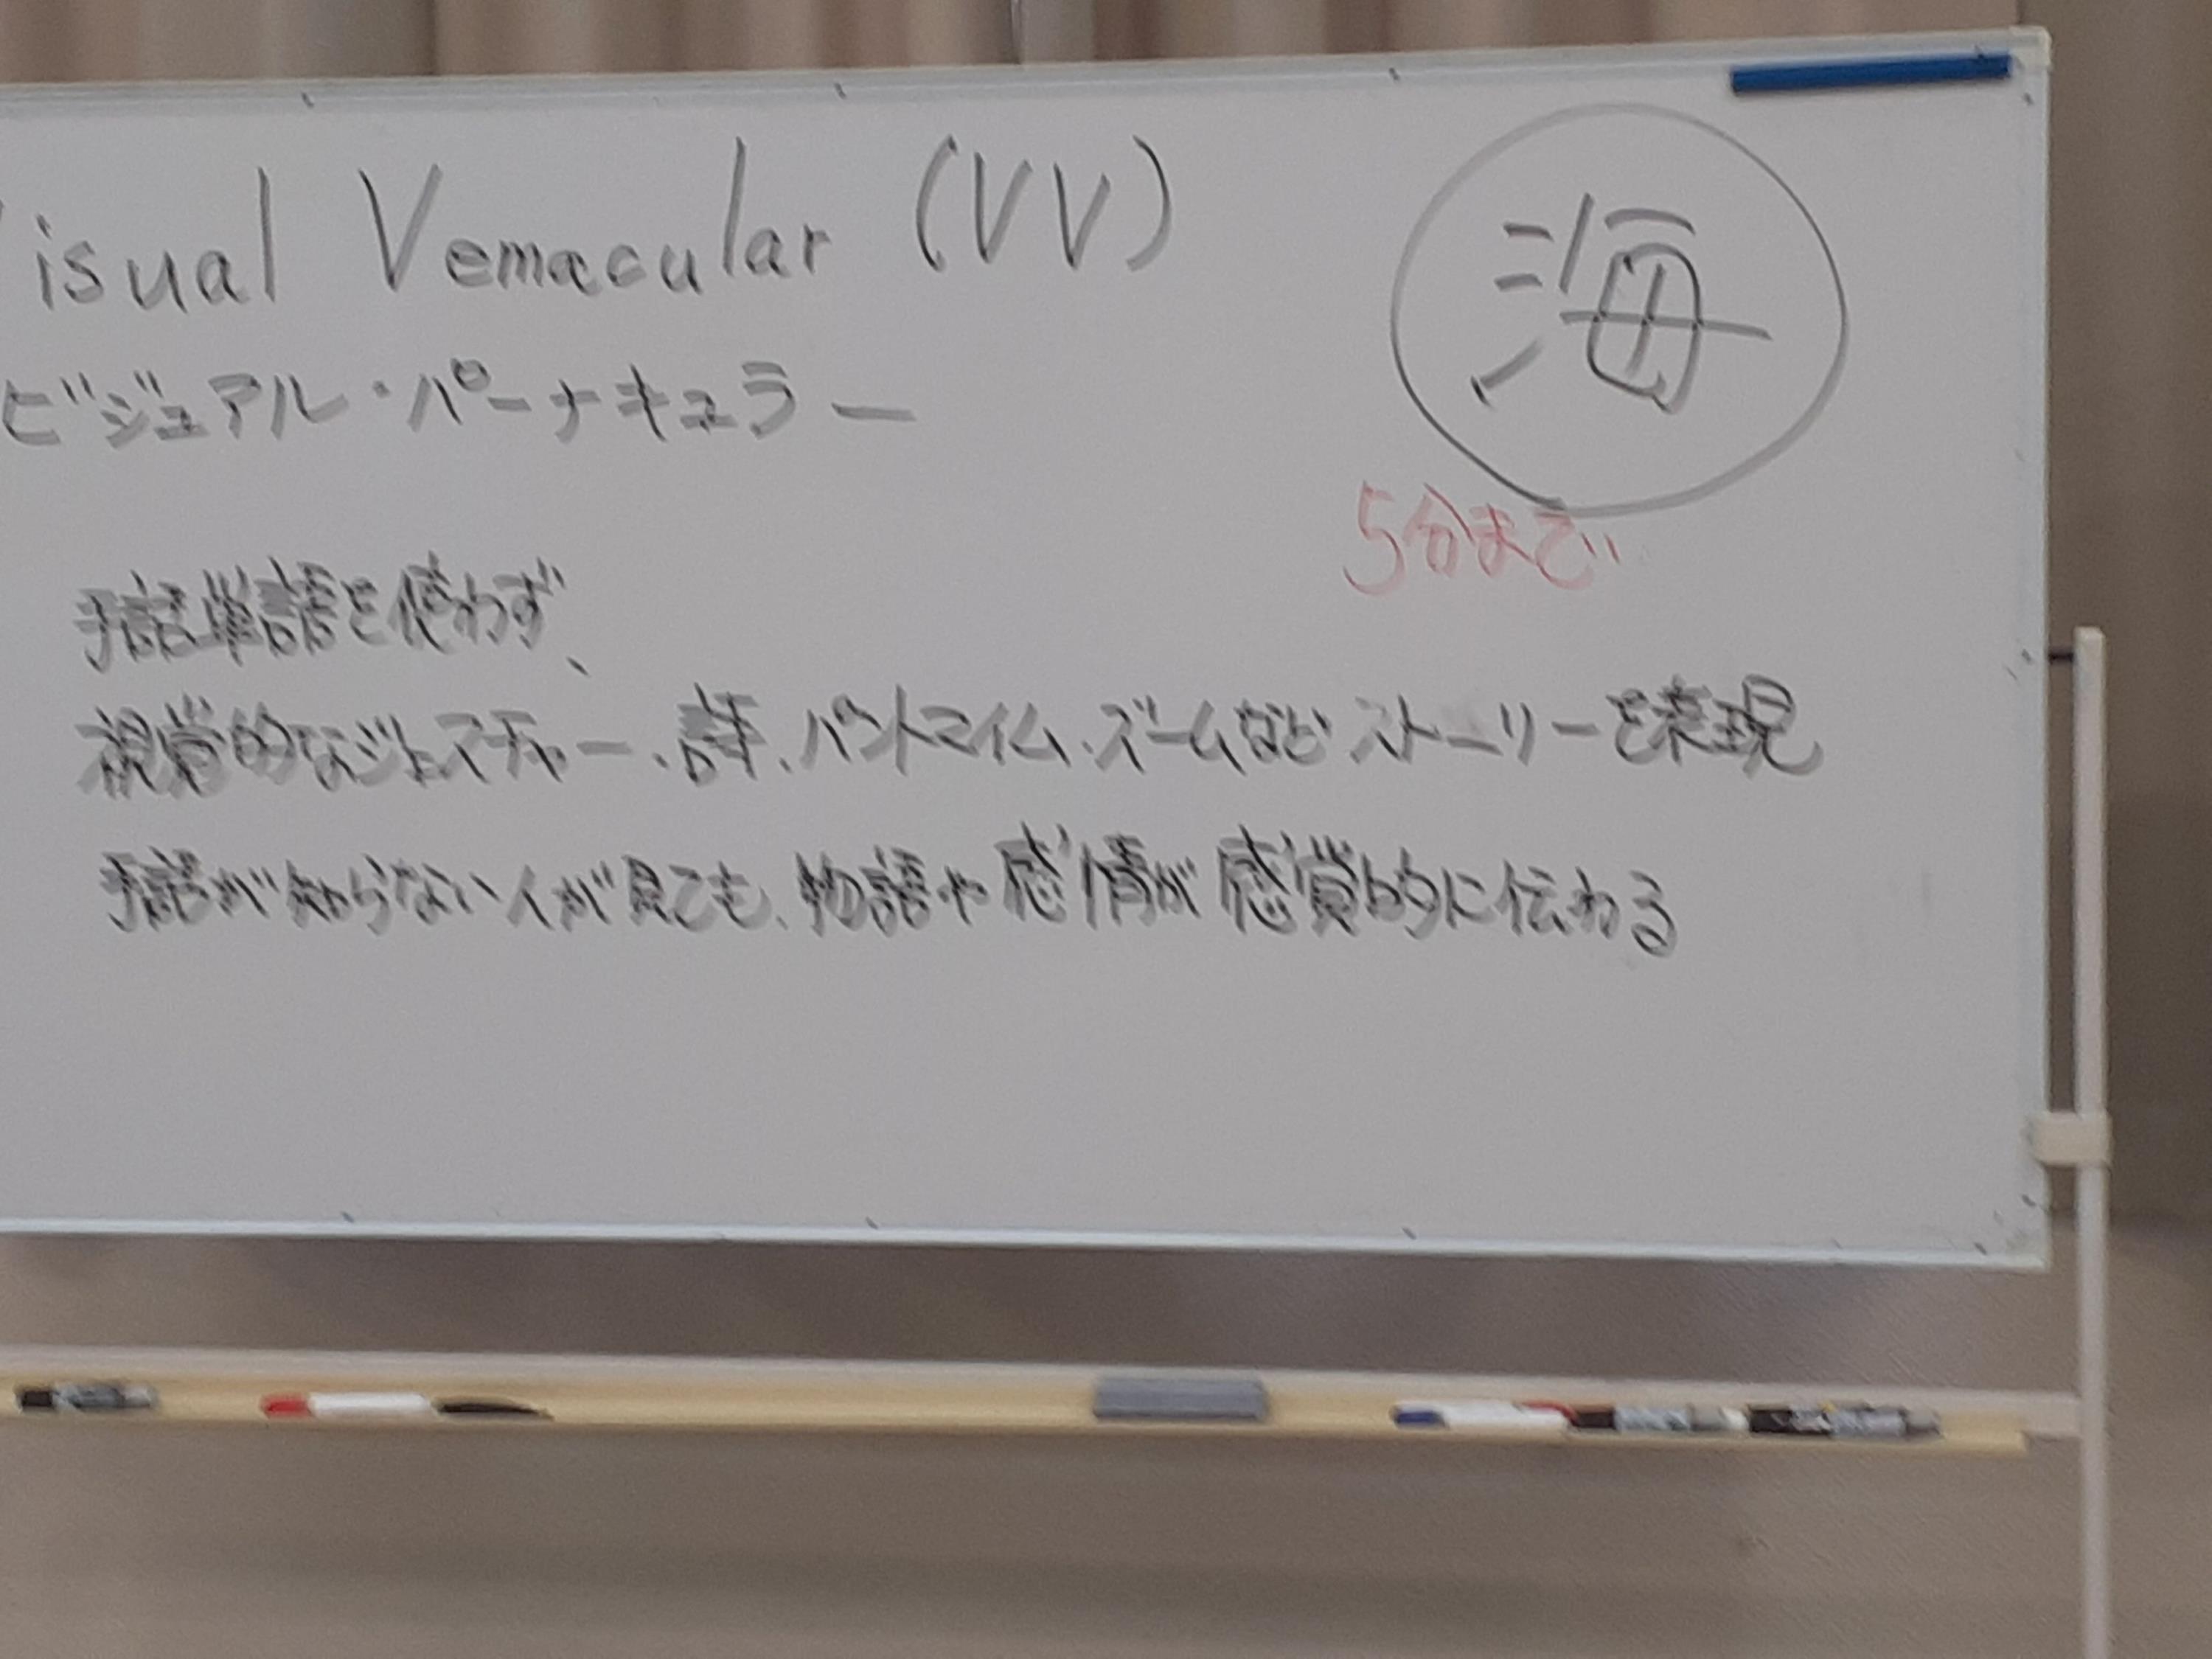 Visual Vernacular (VV)
ビジュアル・パーナキュラー
海
5分まで
手話単語を使わず、
視覚的なジェスチャー、詩、パントマイム、ズームなどストーリーを表現
手話が知らない人が見ても、物語や感情が感覚的に伝わる